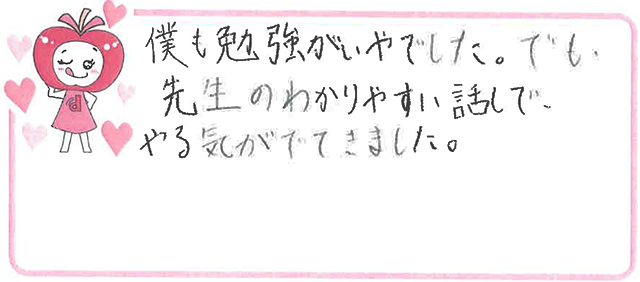 僕も勉強がいやでした。でも、
先生のわかりやすい話しで、
やる気がでてきました。